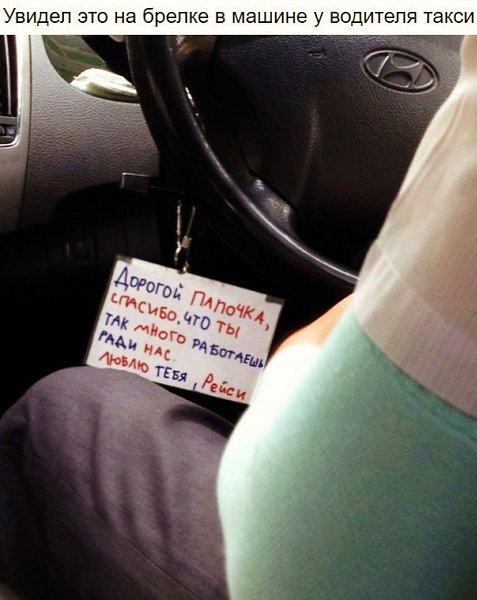 Увидел это на брелке в машине у водителя такси
ДОРОГОЙ ПАПОЧКА,
СПАСИБО, ЧТО ТЫ
ТАК МНОГО РАБОТАЕШЬ
РАДИ НАС.
ЛЮБЛЮ ТЕБЯ, Рейси